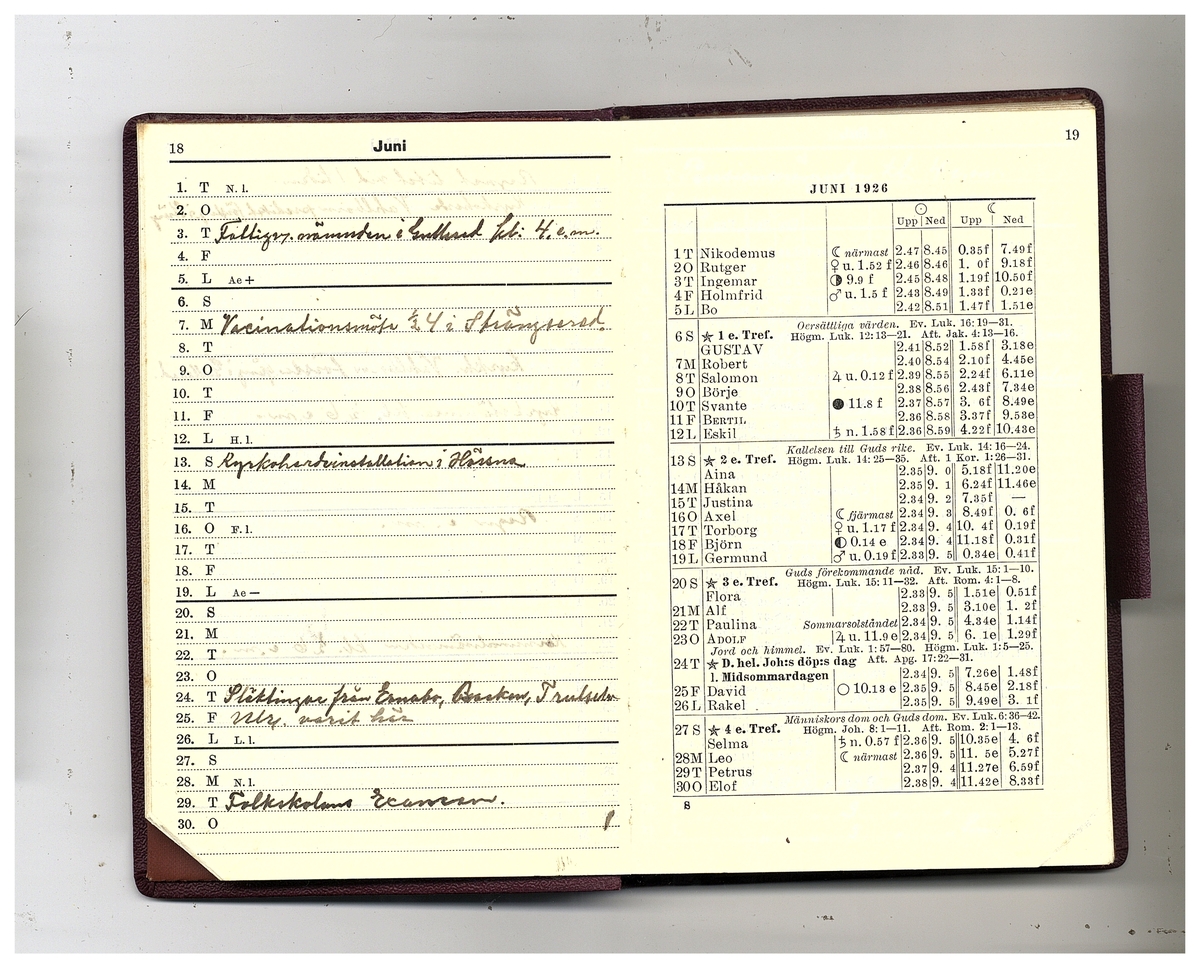 18 Juni
1. T N. l.
2. O
3. T nämnden i kl: 4. e. m.
4. F
5. L Ae +
6. S
7. M Vacinationsmöte ½ 4 i Strängsered
8. T
9. O
10. T
11. F
12. L H. l.
13. S Kyrkoherdeinstallation i Hössna
14. M
15. T
16. O F. l.
17. T
18. F
19. L Ae —
20. S
21. M
22. T
23. O
24. T Släktingar från
25. F varit här
26. L L. l.
27. S
28. M N. l.
29. T Folkskolans Examen.
30. O
19
JUNI 1926
☉ ☾
Upp Ned Upp Ned
1 T Nikodemus ☾ närmast 2.47 8.45 0.35 f 7.49 f
2 O Rutger ♀ u. 1.52 f 2.46 8.46 1. 0 f 9.18 f
3 T Ingemar ◑ 9.9 f 2.45 8.48 1.19 f 10.50 f
4 F Holmfrid ♂ u. 1.5 f 2.43 8.49 1.33 f 0.21 e
5 L Bo 2.42 8.51 1.47 f 1.51 e
Oersättliga värden. Ev. Luk. 16: 19—31.
6 S ★ 1 e. Tref. Högm. Luk. 12: 13—21. Aft. Jak. 4: 13—16.
GUSTAV 2.41 8.52 1.58 f 3.18 e
7 M Robert 2.40 8.54 2.10 f 4.45 e
8 T Salomon ♃ u. 0.12 f 2.39 8.55 2.24 f 6.11 e
9 O Börje 2.38 8.56 2.43 f 7.34 e
10 T Svante ● 11.8 f 2.37 8.57 3. 6 f 8.49 e
11 F BERTIL 2.36 8.58 3.37 f 9.53 e
12 L Eskil ♄ n. 1.58 f 2.36 8.59 4.22 f 10.43 e
Kallelsen till Guds rike. Ev. Luk. 14: 16—24.
13 S ★ 2 e. Tref. Högm. Luk. 14: 25—35. Aft. 1 Kor. 1: 26—31.
Aina 2.35 9. 0 5.18 f 11.20 e
14 M Håkan 2.35 9. 1 6.24 f 11.46 e
15 T Justina 2.34 9. 2 7.35 f —
16 O Axel ☾ fjärmast 2.34 9. 3 8.49 f 0. 6 f
17 T Torborg ♀ u. 1.17 f 2.34 9. 4 10. 4 f 0.19 f
18 F Björn ◐ 0.14 e 2.34 9. 4 11.18 f 0.31 f
19 L Germund ♂ u. 0.19 f 2.33 9. 5 0.34 e 0.41 f
Guds förekommande nåd. Ev. Luk. 15: 1—10.
20 S ★ 3 e. Tref. Högm. Luk. 15: 11—32. Aft. Rom. 4: 1—8.
Flora 2.33 9. 5 1.51 e 0.51 f
21 M Alf 2.33 9. 5 3.10 e 1. 2 f
22 T Paulina Sommarsolståndet 2.34 9. 5 4.34 e 1.14 f
23 O ADOLF ♃ u. 11.9 e 2.34 9. 5 6. 1 e 1.29 f
Jord och himmel. Ev. Luk. 1: 57—80. Högm. Luk. 1: 5—25.
24 T ★ D. hel. Joh:s döp:s dag Aft. Apg. 17: 22—31.
l. Midsommardagen 2.34 9. 5 7.26 e 1.48 f
25 F David ○ 10.13 e 2.35 9. 5 8.45 e 2.18 f
26 L Rakel 2.35 9. 5 9.49 e 3. 1 f
Människors dom och Guds dom. Ev. Luk. 6: 36—42.
27 S ★ 4 e. Tref. Högm. Joh. 8: 1—11. Aft. Rom. 2: 1—13.
Selma ♄ n. 0.57 f 2.36 9. 5 10.35 e 4. 6 f
28 M Leo ☾ närmast 2.36 9. 5 11. 5 e 5.27 f
29 T Petrus 2.37 9. 4 11.27 e 6.59 f
30 O Elof 2.38 9. 4 11.42 e 8.33 f
8